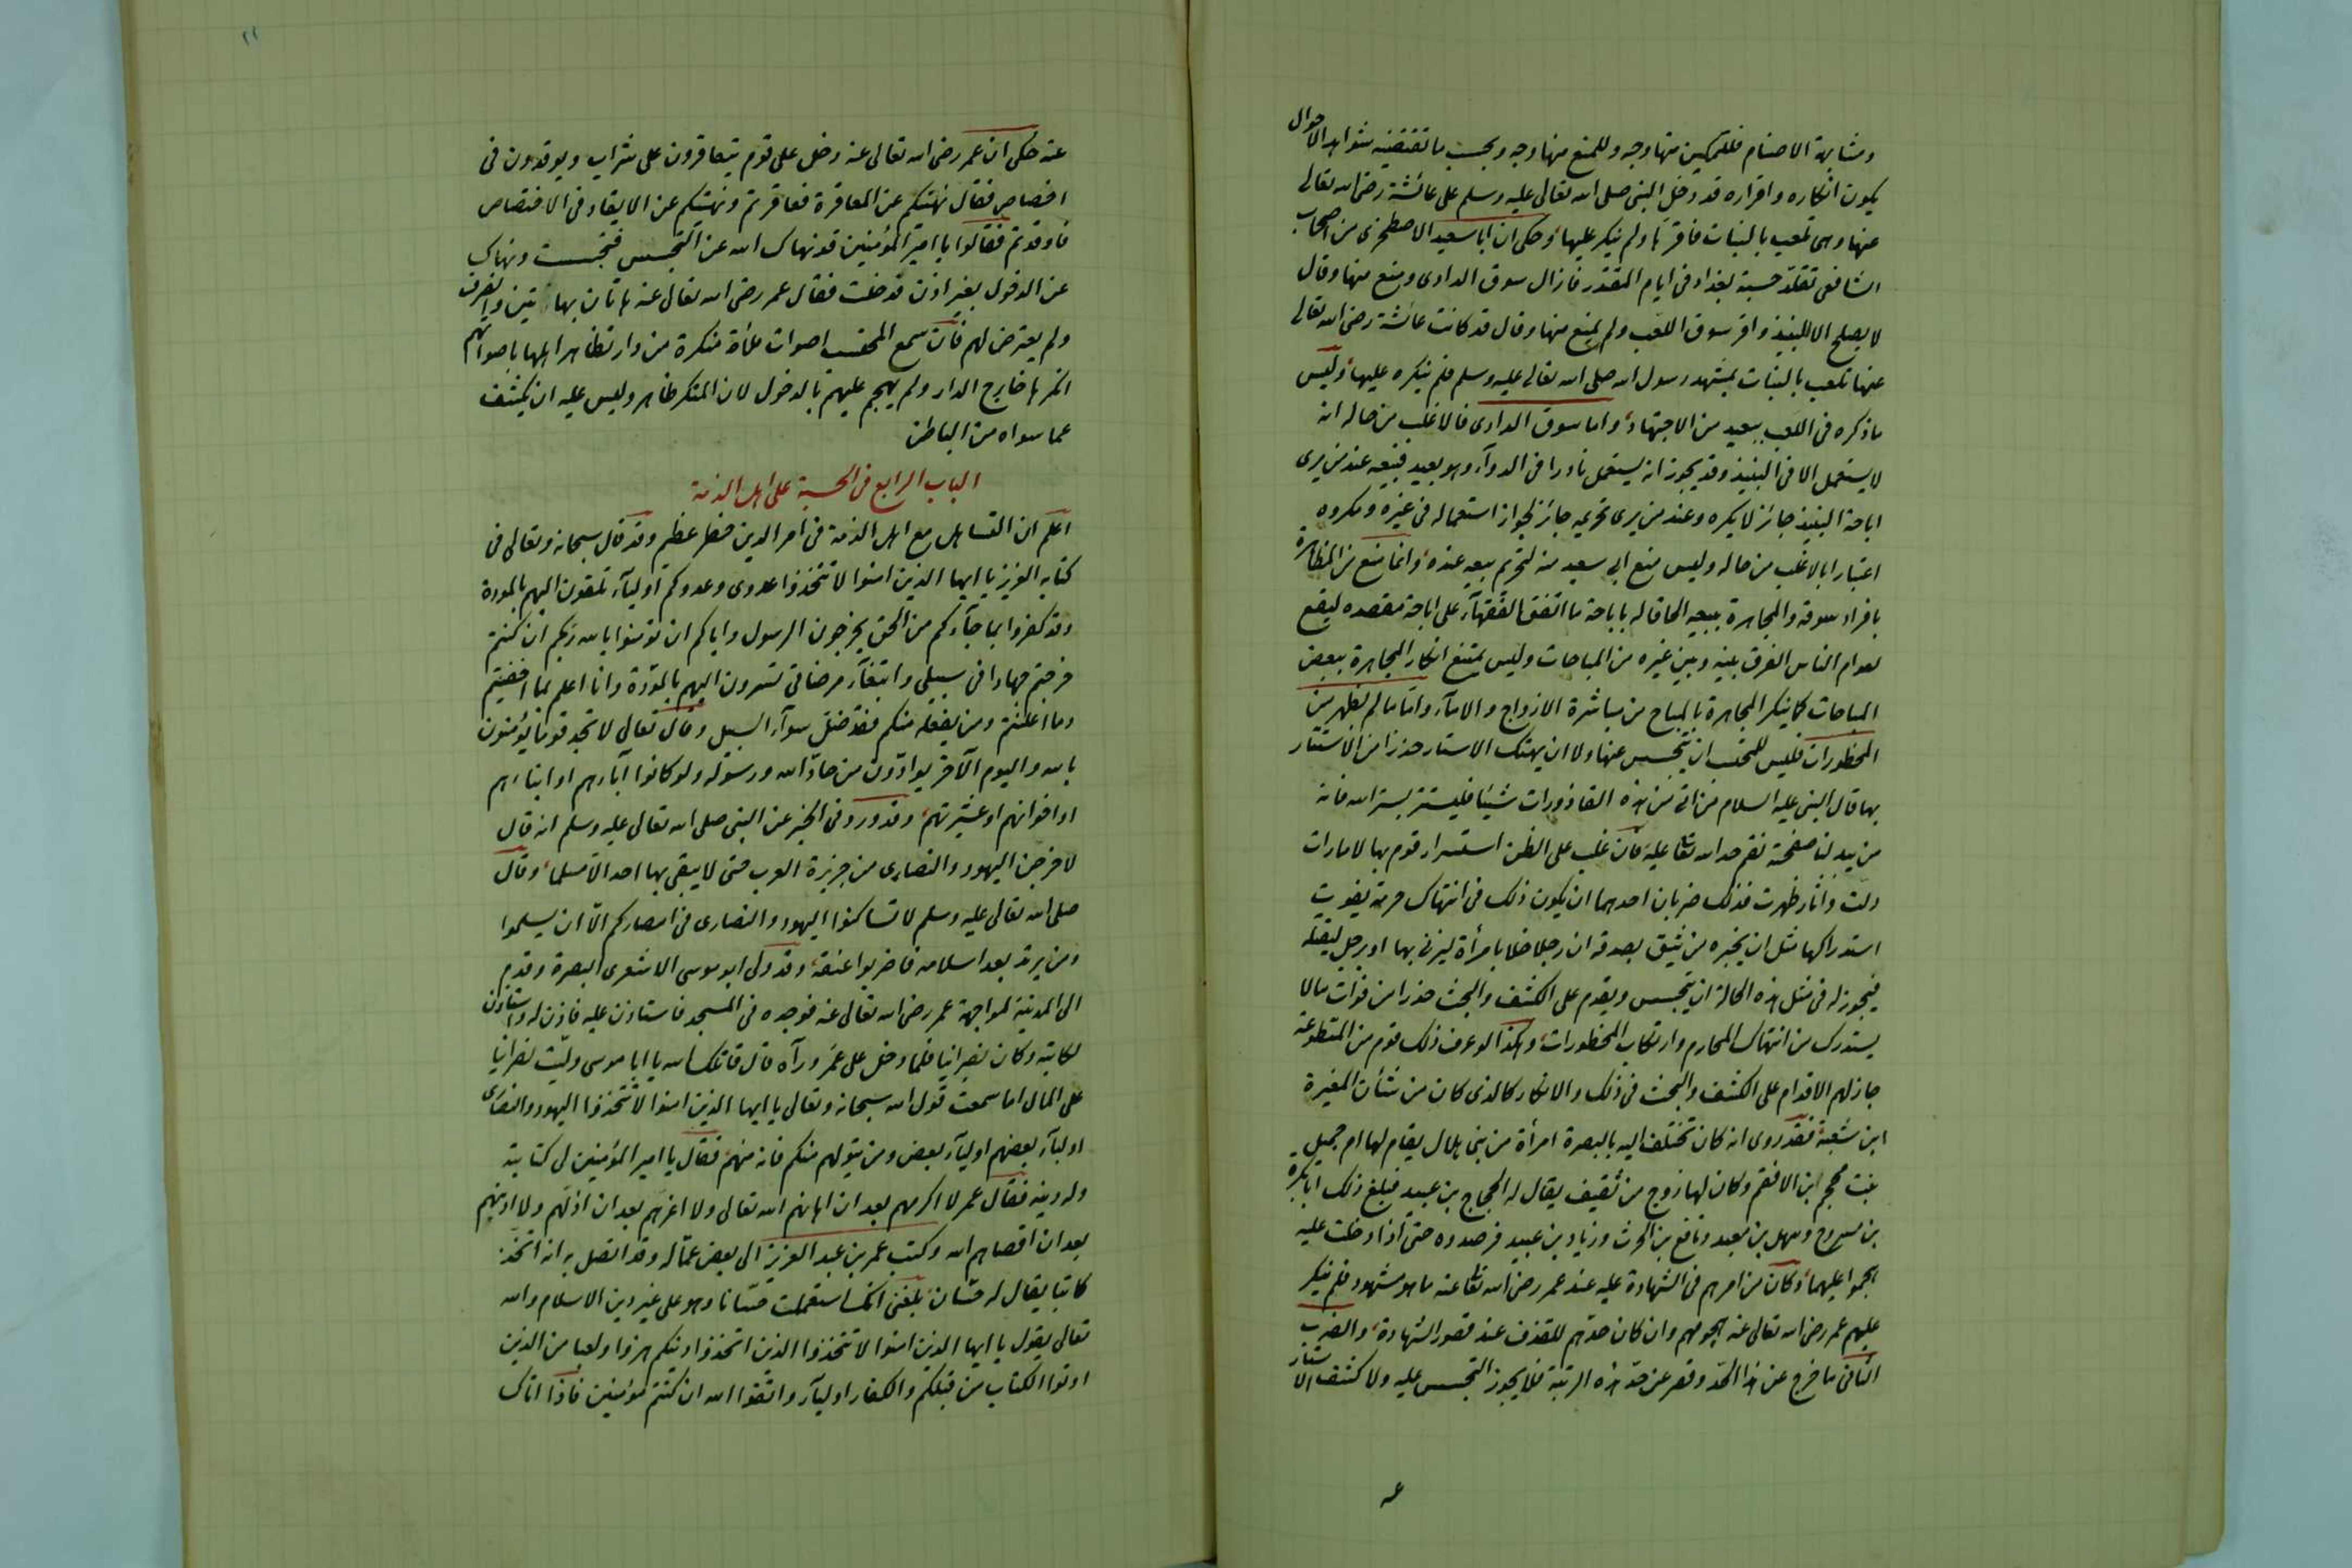 ومشابهة الاصنام فللتمكين منها وجه وللمنع منها وجه وبحسب ما تقتضيه شواهد الاحوال
يكون انكاره واقراره قد دخل النبى صلى الله تعالى عليه وسلم على عائشة رضى الله تعالى
عنها وهى تلعب بالبنات فاقرّها ولم ينكر عليها وحكى ان ابا سعيد الاصطخرى من اصحاب
الشافعى تقلّد حسبة بغداد فى ايام المقتدر فازال سوق الدادى ومنع منها وقال
لا يصلح الا للنبيذ واقر سوق اللعب ولم يمنع منها وقال قد كانت عائشة رضى الله تعالى
عنها تلعب بالبنات بمشهد رسول الله صلى الله تعالى عليه وسلم فلم ينكره عليها وليس
ما ذكره فى اللعب ببعيد من الاجتهاد واما سوق الدادى فالاغلب من حاله انه
لا يستعمل الا فى النبيذ وقد يجوز انه يستعمل نادرا فى الدوآء وهو بعيد فبيعه عند من يرى
اباحة النبيذ جائز لا يكره وعند من يرى تحريمه جائز لجواز استعماله فى غيره ومكروه
اعتبارا بالاغلب من حاله وليس منع ابى سعيد منه لتحريم بيعه عنده وانما منع من المظاهرة
بافراد سوقه والمجاهرة ببيعه الحاقا له باباحة ما اتفق الفقهآء على اباحة مقصده ليقع
لعوام الناس الفرق بينه وبين غيره من المباحات وليس يمتنع انكار المجاهرة ببعض
المباحات كما ينكر المجاهرة بالمباح من مباشرة الازواج والامآء وامّا ما لم يظهر من
المحظورات فليس للمحتسب ان يتجسس عنها ولا ان يهتك الاستار حذرا من الاستتار
بها قال النبى عليه السلام من اتى من هذه القاذورات شيئا فليستتر بستر الله فانه
من يبد لنا صفحته نقم حد الله تعا عليه فان غلب على الظن استسرار قوم بها لامارات
دلت وآثار ظهرت فذلك ضربان احدهما ان يكون ذلك فى انتهاك حرمة يفوت
استدراكها مثل ان يخبره من يثق بصدقه ان رجلا خلا بامرأة ليزنى بها او برجل ليقتله
فيجوز له فى مثل هذه الحالة ان يتجسس ويقدم على الكشف والبحث حذرا من فوات ما لا
يستدرك من انتهاك المحارم وارتكاب المحظورات وهكذا لو عرف ذلك قوم من المتطوعة
جاز لهم الاقدام على الكشف والبحث فى ذلك والانكار كالذى كان من شأن المغيرة
ابن شعبة فقد روى انه كان تختلف اليه بالبصرة امرأة من بنى هلال يقام لها ام جميل
بنت محجم ابن الافقم وكان لها زوج من ثقيف يقال له الحجاج بن عبيد فبلغ ذلك ابا بكرة
بن مسروح وسهل بن معبد ونافع بن الحرث وزياد بن عبيد فرصدوه حتى اذا دخلت عليه
هجموا عليهما وكان من امرهم فى الشهادة عليه عند عمر رضى الله تعا عنه ما هو مشهود فلم ينكر
عليهم عمر رضى الله تعالى عنه هجومهم وان كان حدّهم للقذف عند قصور الشهادة والضرب
الثانى ما خرج عن هذا الحدّ وقصر عن حدّ هذه الرتبة فلا يجوز التجسس عليه ولا كشف الاستار
عنه حكى ان عمر رضى الله تعالى عنه دخل على قوم يتعاقرون على شراب ويوقدون فى
اخصاص فقال نهيتكم عن المعاقرة فعاقرتم ونهيتكم عن الايقاد فى الاختصاص
فاوقدتم فقالوا يا امير المؤمنين قد نهاك الله عن التجسس فتجسست ونهاك
عن الدخول بغير اذن فدخلت فقال عمر رضى الله تعالى عنه هاتان بهاتين وانصرف
ولم يعترض لهم فان سمع المحتسب اصوات ملهاة منكرة من دار تظاهر اهلها باصواتهم
انكرها خارج الدار ولم يهجم عليهم بالدخول لان المنكر ظاهر وليس عليه ان يكشف
عما سواه من الباطن
الباب الرابع فى الحسبة على اهل الذمة
اعلم ان التساهل مع اهل الذمة فى امر الدين خطر عظيم وقد قال سبحانه وتعالى فى
كتابه العزيز يا ايها الذين امنوا لا تتخذوا عدوى وعدوكم اوليآء تلقون اليهم بالمودة
وقد كفروا بما جآءكم من الحق يخرجون الرسول واياكم ان تؤمنوا بالله ربكم ان كنتم
خرجتم جهادا فى سبيلى وابتغآء مرضاتى تسرون اليهم بالمودّة وانا اعلم بما اخفيتم
وما اعلنتم ومن يفعله منكم فقد ضلّ سوآء السبيل وقال تعالى لا تجد قوما يؤمنون
بالله واليوم الآخر يوادّون من حادّ الله ورسوله ولو كانوا آباءهم او ابناءهم
او اخوانهم او عشيرتهم وقد ورد فى الخبر عن النبى صلى الله تعالى عليه وسلم انه قال
لاخرجن اليهود والنصارى من جزيرة العرب حتى لا يبقى بها احد الا مسلما وقال
صلى الله تعالى عليه وسلم لا تساكنوا اليهود والنصارى فى امصاركم الّا ان يسلموا
ومن يرتد بعد اسلامه فاضربوا عنقه وقد ولى ابو موسى الاشعرى البصرة وقدم
الى المدينة لمواجهة عمر رضى الله تعالى عنه فوجده فى المسجد فاستاذن عليه فاذن له واستاذن
لكاتبه وكان نصرانيا فلما دخل على عمر ورآه قال قاتلك الله يا ابا موسى وليّت نصرانيا
على المال اما سمعت قول الله سبحانه وتعالى يا ايها الذين امنوا لا تتخذوا اليهود والنصارى
اوليآء بعضهم اوليآء بعض ومن يتولهم منكم فانه منهم فقال يا امير المؤمنين لى كتابته
وله دينه فقال عمر لا اكرمهم بعد ان اهانهم الله تعالى ولا اعزّهم بعد ان اذلّهم ولا ادنيهم
بعد ان اقصاهم الله وكتب عمر بن عبد العزيز الى بعض عمّاله وقد اتصل به انه اتخذ
كاتبا يقال له حسّان بلغنى انك استعملت حسّانا وهو على غير دين الاسلام والله
تعالى يقول يا ايها الذين امنوا لا تتخذوا الذين اتخذوا دينكم هزوا ولعبا من الذين
اوتوا الكتاب من قبلكم والكفار اوليآء واتقوا الله ان كنتم مؤمنين فاذا اتاك